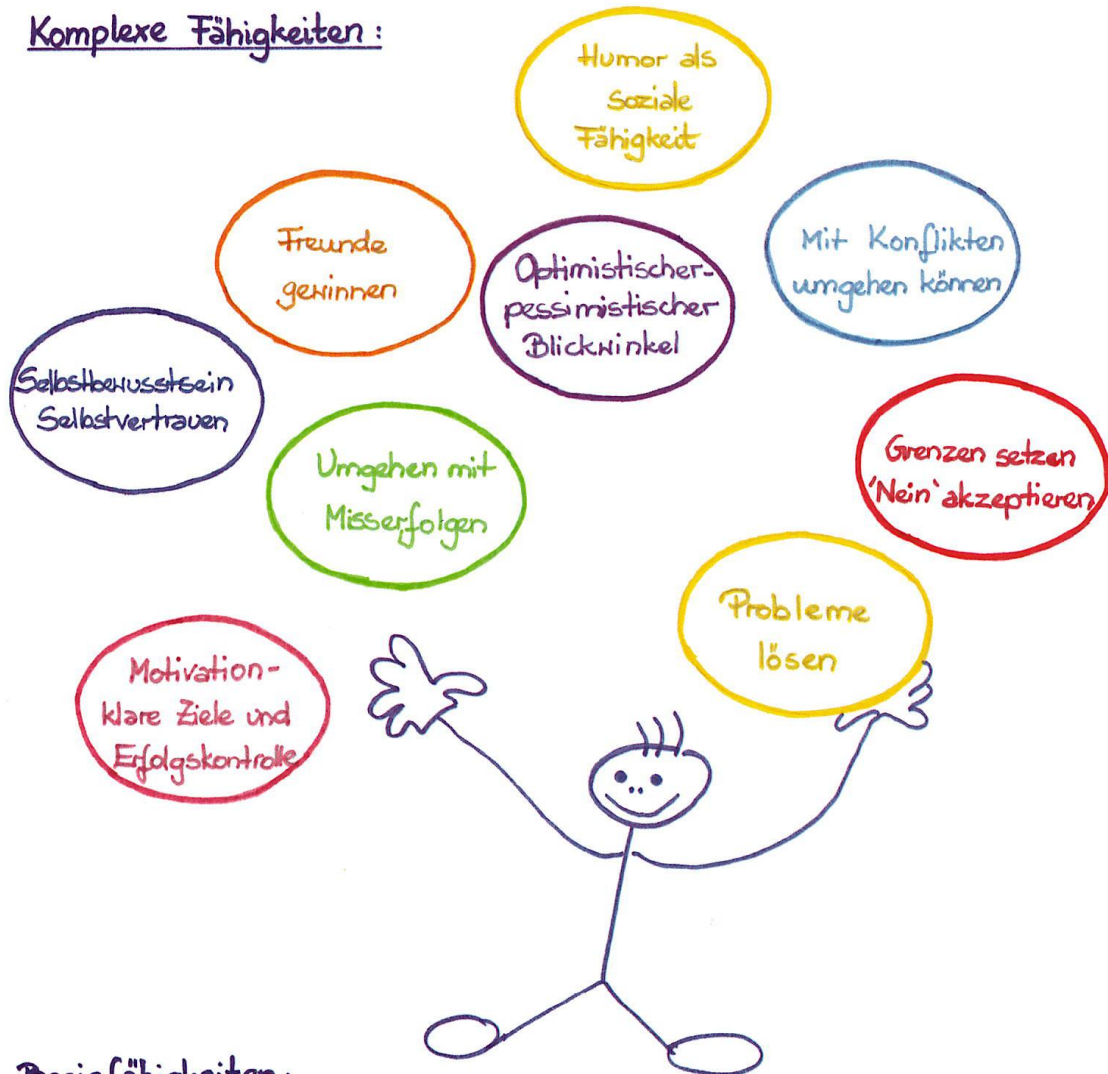 Komplexe Fähigkeiten:
Humor als
soziale
Fähigkeit
Freunde
gewinnen
Optimistischer-
pessimistischer
Blickwinkel
Mit Konflikten
umgehen können
Selbstbewusstsein
Selbstvertrauen
Umgehen mit
Misserfolgen
Grenzen setzen
'Nein' akzeptieren
Probleme
lösen
Motivation-
klare Ziele und
Erfolgskontrolle
Basisfähigkeiten: